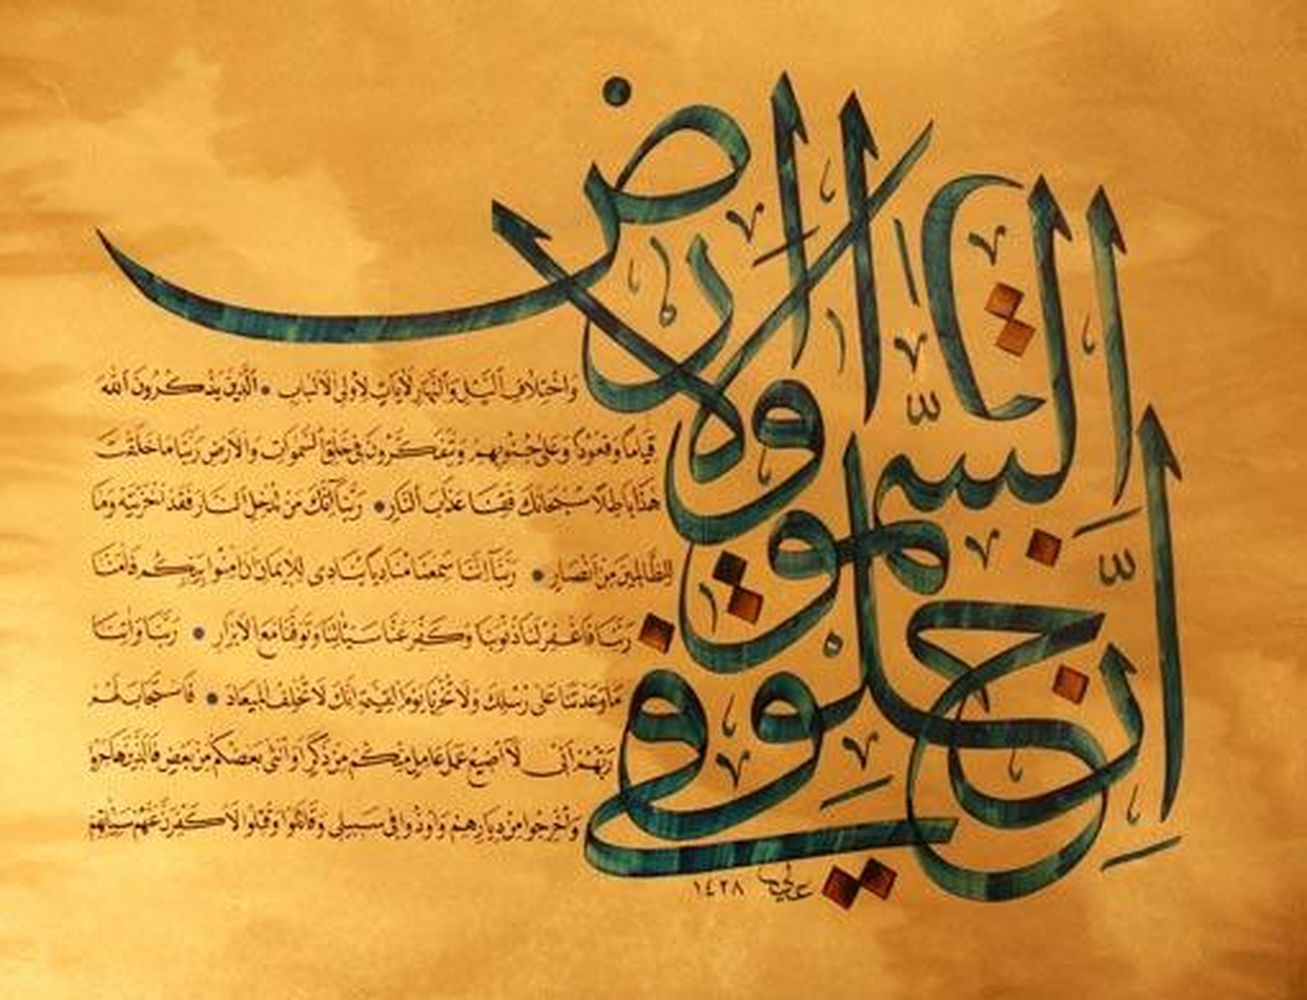 إن في خلق السموات والأرض
واختلاف الليل والنهار لآيات لأولي الألباب * الذين يذكرون الله
قياما وقعودا وعلى جنوبهم ويتفكرون في خلق السموات والأرض ربنا ما خلقت
هذا باطلا سبحانك فقنا عذاب النار * ربنا إنك من تدخل النار فقد أخزيته وما
للظالمين من أنصار * ربنا إننا سمعنا مناديا ينادي للإيمان أن آمنوا بربكم فآمنا
ربنا فاغفر لنا ذنوبنا وكفر عنا سيئاتنا وتوفنا مع الأبرار * ربنا وآتنا
ما وعدتنا على رسلك ولا تخزنا يوم القيمة إنك لا تخلف الميعاد * فاستجاب لهم
ربهم أني لا أضيع عمل عامل منكم من ذكر أو أنثى بعضكم من بعض فالذين هاجروا
وأخرجوا من ديارهم وأوذوا في سبيلي وقاتلوا وقتلوا لأكفرن عنهم سيئاتهم
١٤٢٨